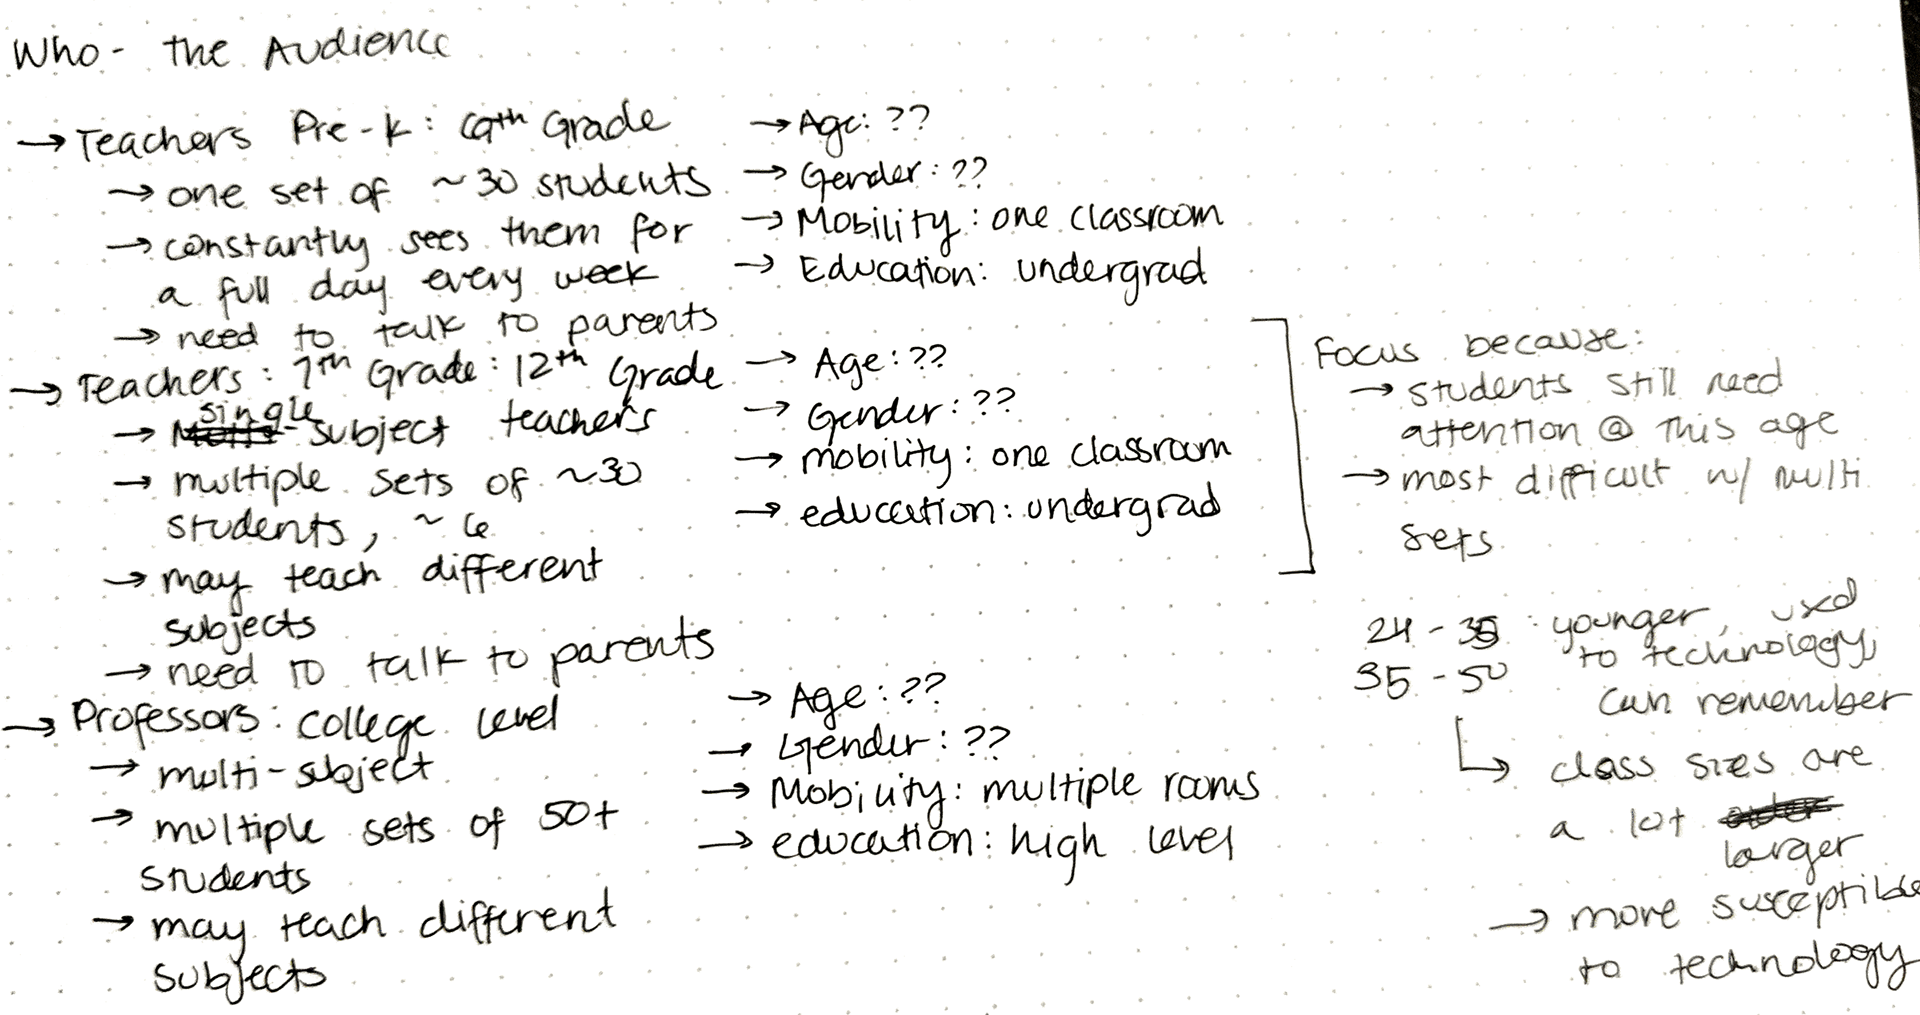 Who - the Audience
→ Teachers Pre-K : 6th Grade
→ one set of ~30 students
→ constantly sees them for
a full day every week
→ need to talk to parents
→ Age: ??
→ Gender: ??
→ Mobility: one classroom
→ Education: undergrad
→ Teachers: 7th Grade: 12th Grade
→ single-subject teachers
→ multiple sets of ~30
students, ~6
→ may teach different
subjects
→ need to talk to parents
→ Age: ??
→ Gender: ??
→ mobility: one classroom
→ education: undergrad
Focus because:
→ students still need
attention @ this age
→ most difficult w/ multi
sets
→ Professors: college level
→ multi-subject
→ multiple sets of 50+
students
→ may teach different
subjects
→ Age: ??
→ Gender: ??
→ Mobility: multiple rooms
→ education: high level
24 - 35 : younger, used
to technology,
35 - 50
can remember
↳ class sizes are
a lot
larger
→ more susceptible
to technology